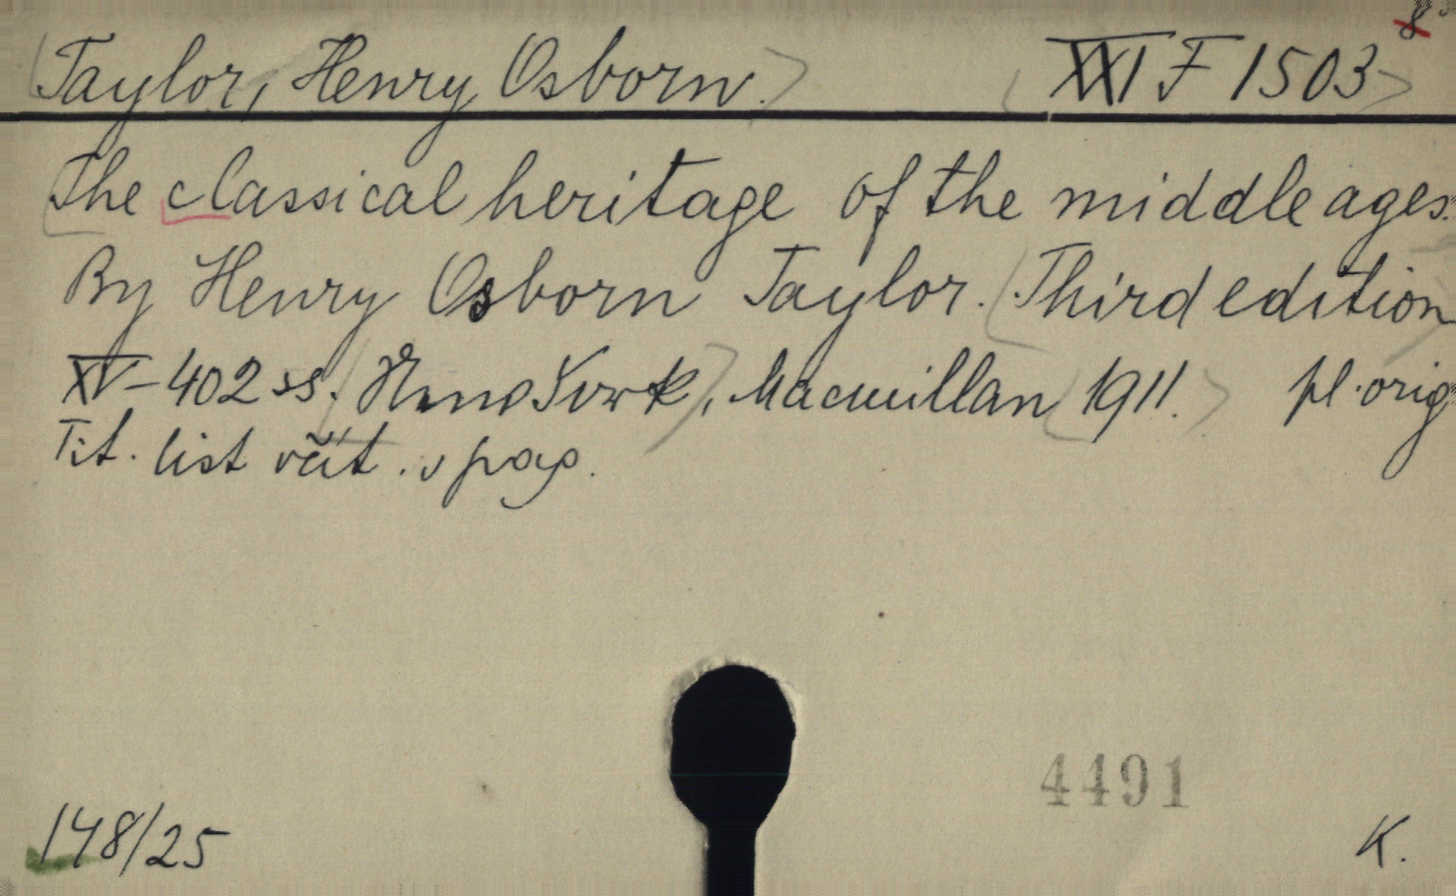 Taylor, Henry Osborn. XXI F 1503 8°
The classical heritage of the middle ages.
By Henry Osborn Taylor. Third edition
XV-402 ss. New York, Macmillan 1911. pl. orig
Tit. list včít. v pag.
4491
148/25 K.